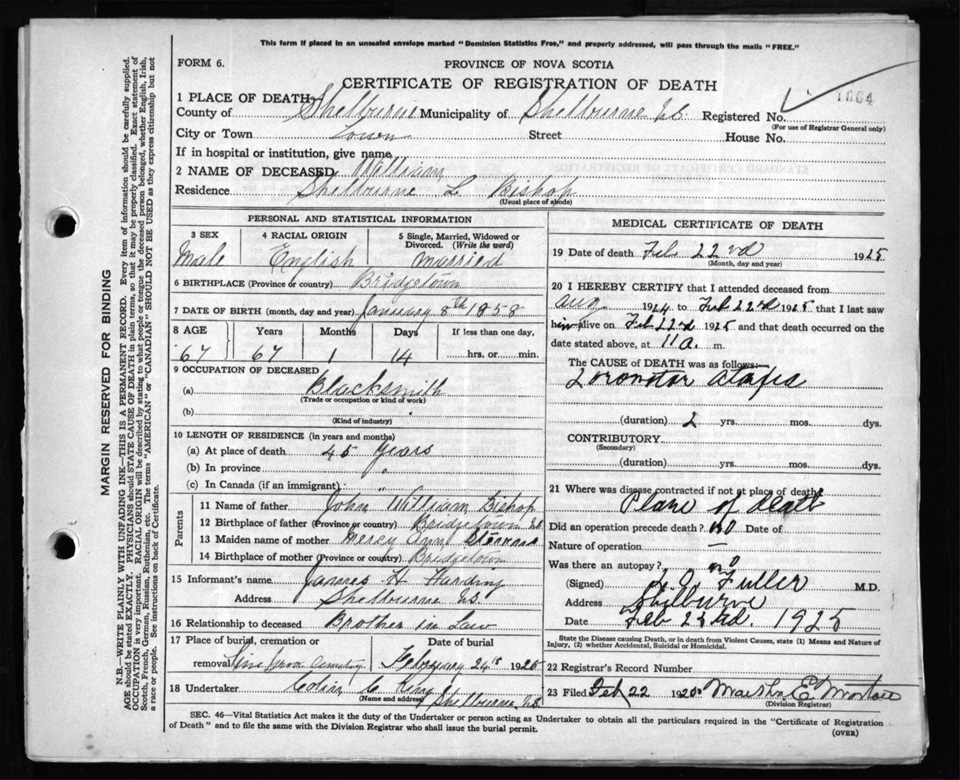 This form if placed in an unsealed envelope marked "Dominion Statistics Free," and properly addressed, will pass through the mails "FREE."
FORM 6.
PROVINCE OF NOVA SCOTIA
CERTIFICATE OF REGISTRATION OF DEATH
1664
1 PLACE OF DEATH
County of Shelburne Municipality of Shelburne NS. Registered No.
(For use of Registrar General only)
City or Town Town Street House No.
If in hospital or institution, give name
2 NAME OF DECEASED William L Bishop
Residence Shelburne
(Usual place of abode)
PERSONAL AND STATISTICAL INFORMATION
3 SEX 4 RACIAL ORIGIN 5 Single, Married, Widowed or Divorced. (Write the word)
Male English Married
6 BIRTHPLACE (Province or country) Bridgetown
7 DATE OF BIRTH (month, day and year) January 8th 1858
8 AGE Years Months Days If less than one day,
67 67 1 14 hrs. or min.
9 OCCUPATION OF DECEASED
(a) Blacksmith
(Trade or occupation or kind of work)
(b)
(Kind of industry)
10 LENGTH OF RESIDENCE (in years and months)
(a) At place of death 45 Years
(b) In province "
(c) In Canada (if an immigrant) "
Parents
11 Name of father John William Bishop
12 Birthplace of father (Province or country) Bridgetown NS.
13 Maiden name of mother Mercy Ann
14 Birthplace of mother (Province or country) Bridgetown
15 Informant's name James H Harding
Address Shelburne NS.
16 Relationship to deceased Brother in Law
17 Place of burial, cremation or removal Date of burial
Pine Grove Cemetery February 24th 1925
18 Undertaker Colin C King
(Name and address) Shelburne NS.
MEDICAL CERTIFICATE OF DEATH
19 Date of death Feb 22nd 1925
(Month, day and year)
20 I HEREBY CERTIFY that I attended deceased from
Aug 1924 to Feb 22nd 1925 that I last saw
him alive on Feb 22nd 1925 and that death occurred on the
date stated above, at 11 a. m.
The CAUSE OF DEATH was as follows:
(duration) 2 yrs. mos. dys.
CONTRIBUTORY
(Secondary)
(duration) yrs. mos. dys.
21 Where was disease contracted if not at place of death
Place of death
Did an operation precede death? no Date of
Nature of operation —
Was there an autopsy? no
(Signed) Fuller M.D.
Address Shelburne
Date Feb 23rd 1925
State the Disease causing Death, or in death from Violent Causes, state (1) Means and Nature of
Injury, (2) whether Accidental, Suicidal or Homicidal.
22 Registrar's Record Number
23 Filed Feb 22 1925
(Division Registrar)
SEC. 46—Vital Statistics Act makes it the duty of the Undertaker or person acting as Undertaker to obtain all the particulars required in the "Certificate of Registration
of Death" and to file the same with the Division Registrar who shall issue the burial permit.
(OVER)
MARGIN RESERVED FOR BINDING
N.B.—WRITE PLAINLY WITH UNFADING INK—THIS IS A PERMANENT RECORD. Every item of information should be carefully supplied.
AGE should be stated EXACTLY. PHYSICIANS should STATE CAUSE OF DEATH in plain terms, so that it may be properly classified. Exact statement of
OCCUPATION is very important. RACIAL ORIGIN will be described by stating to what people or tongue the deceased person belonged, whether English, Irish,
Scotch, French, German, Russian, Ruthenian, etc. The terms "AMERICAN" or "CANADIAN" SHOULD NOT BE USED as they express citizenship but not
a race or people. See instructions on back of Certificate.